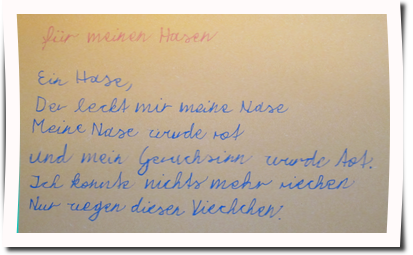 für meinen Hasen
Ein Hase,
Der leckt mir meine Nase
Meine Nase wurde rot
und mein Geruchsinn wurde tot.
Ich konnte nichts mehr riechen
Nur wegen diesen Viechchen.